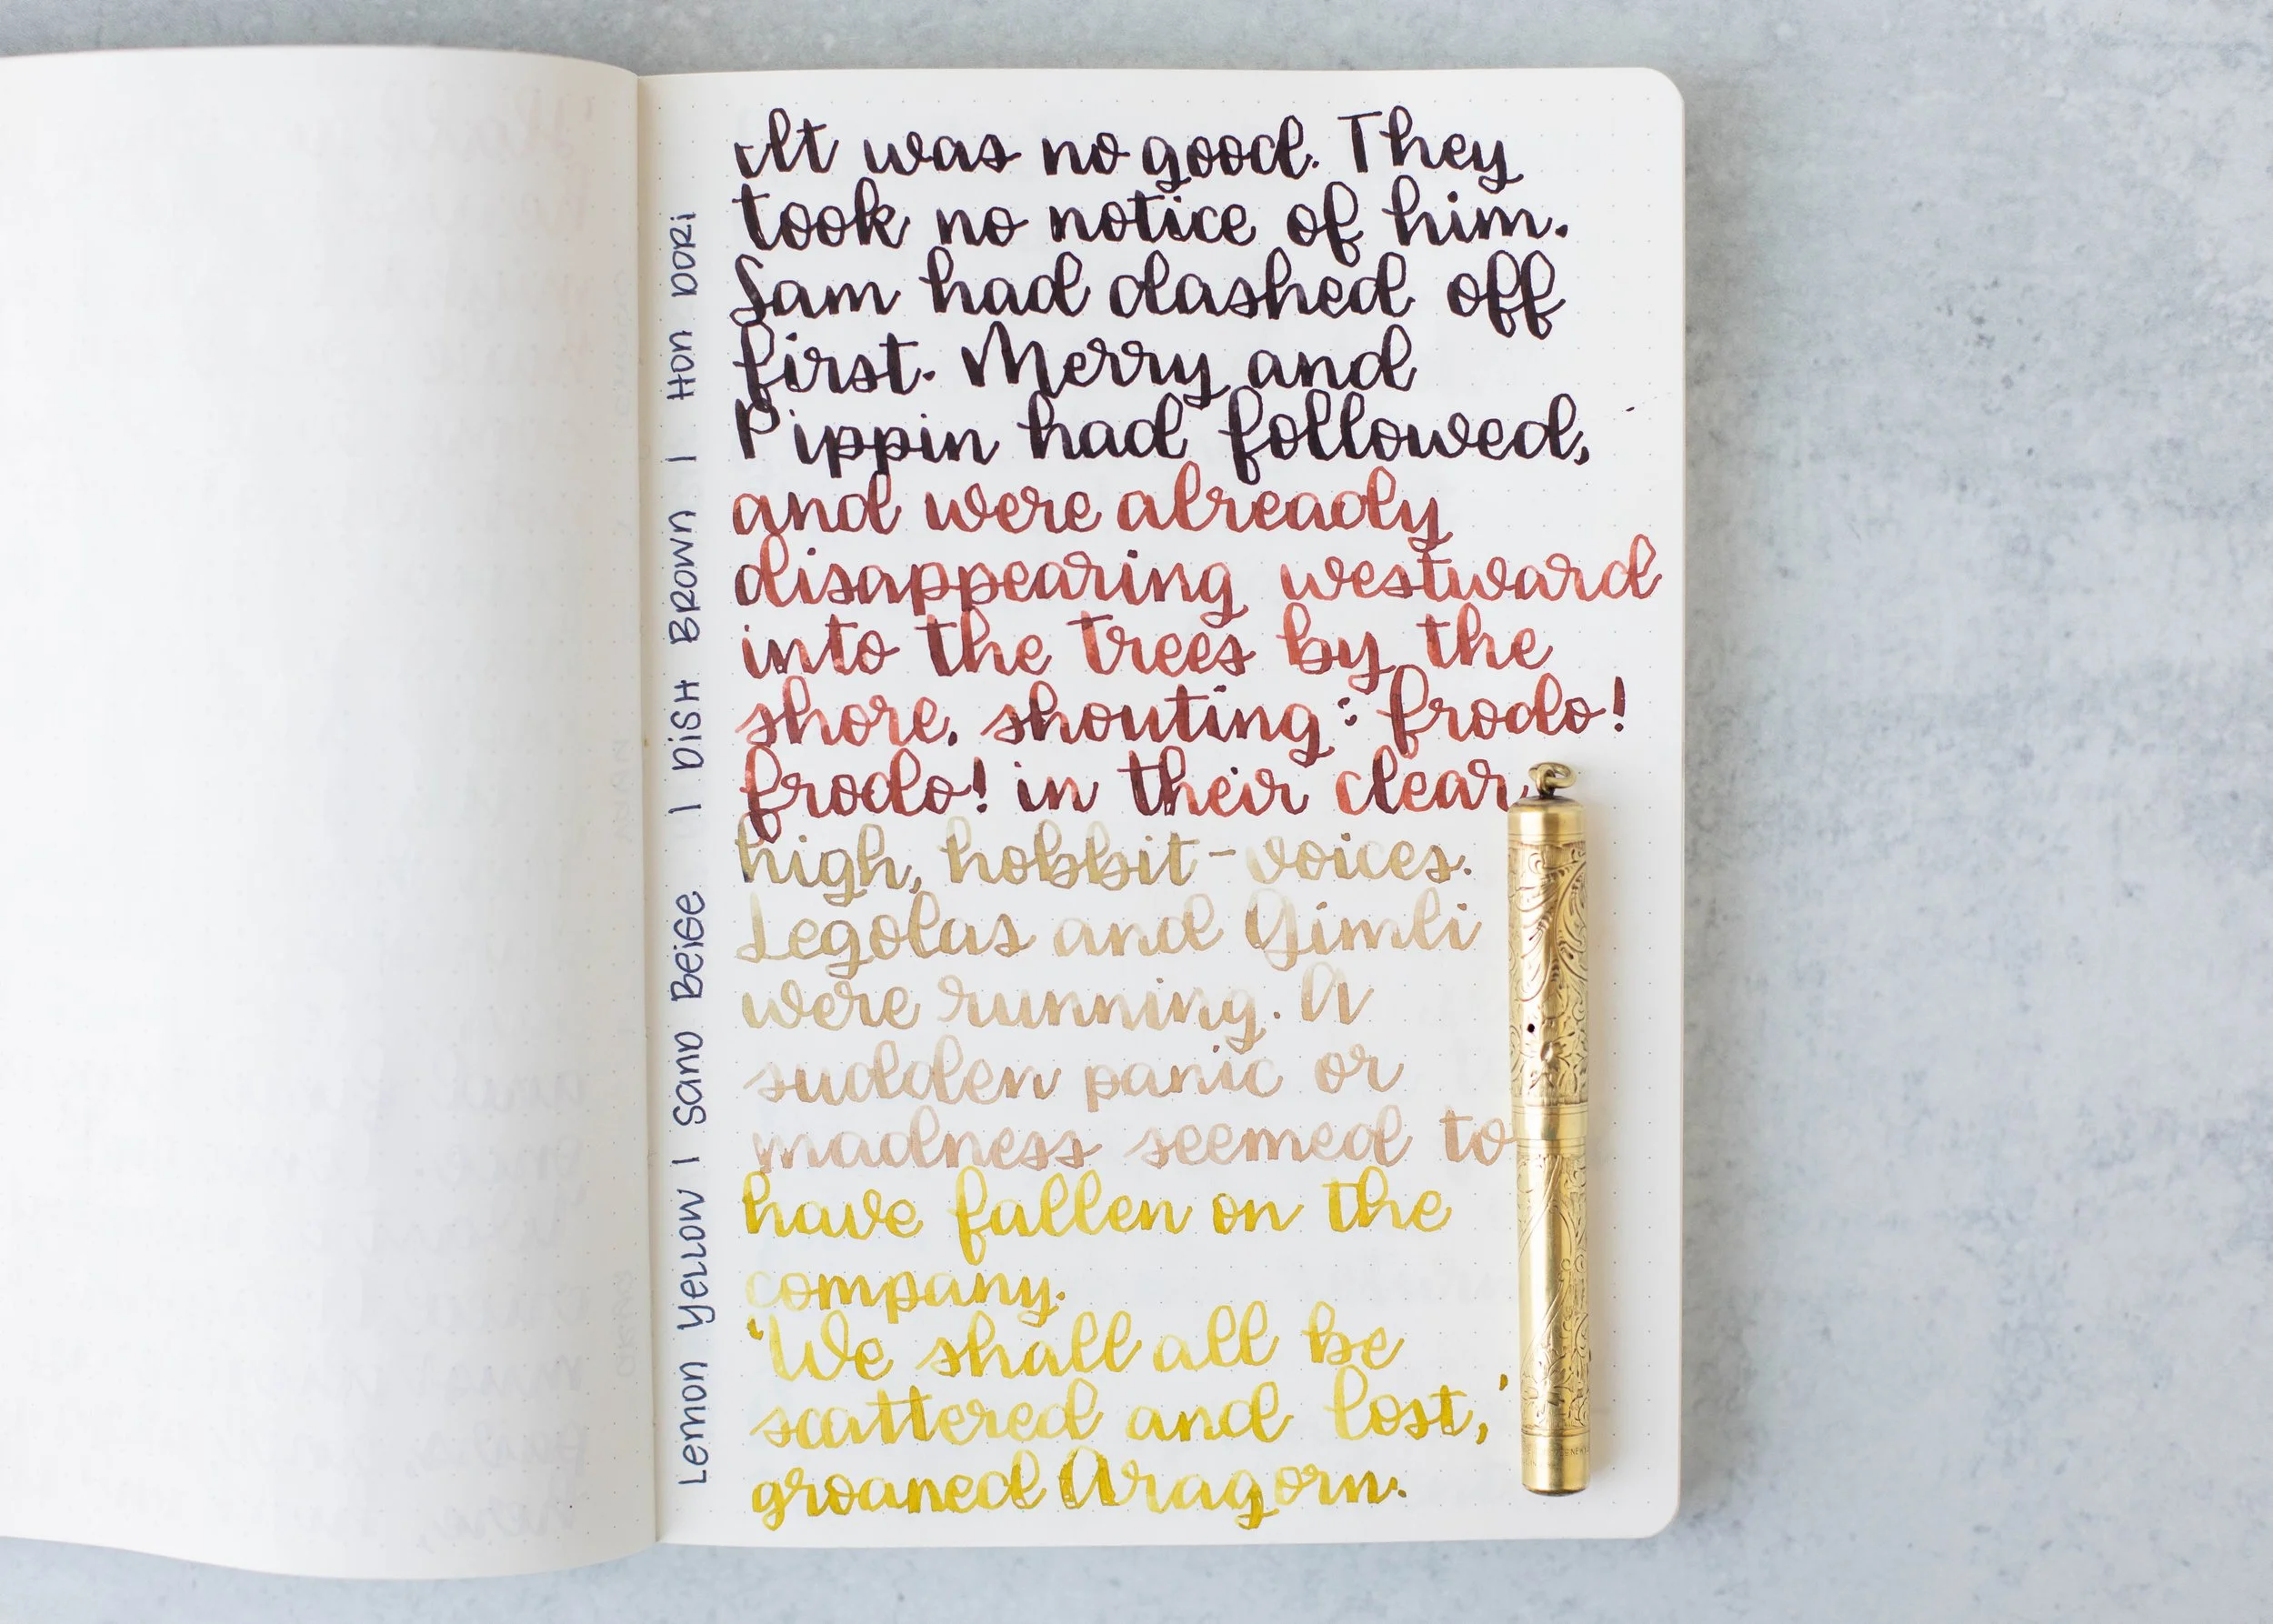 It was no good. They
took no notice of him.
Sam had dashed off
first. Merry and
Pippin had followed,
and were already
disappearing westward
into the trees by the
shore, shouting: Frodo!
Frodo! in their clear,
high, hobbit-voices.
Legolas and Gimli
were running. A
sudden panic or
madness seemed to
have fallen on the
company.
'We shall all be
scattered and lost,'
groaned Aragorn.
Lemon Yellow | Sand Beige | Dish Brown | Hon Dori